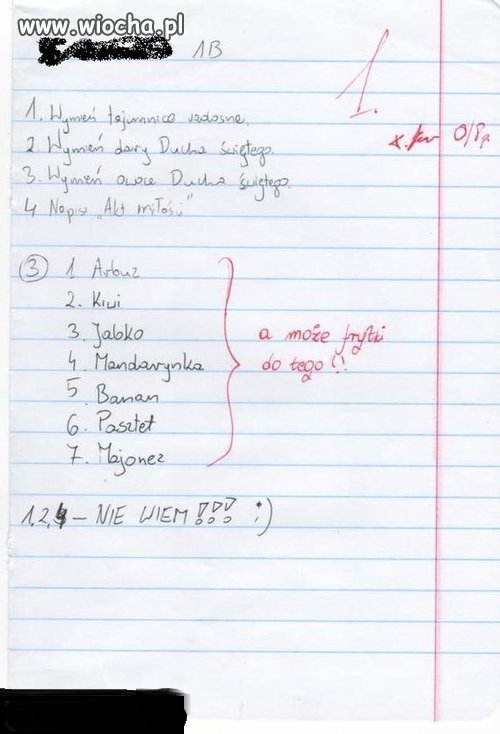 www.wiocha.pl
1B
1.
1. Wymień tajemnice radosne.
2. Wymień dary Ducha świętego.
0/8p.
3. Wymień owoce Ducha świętego.
4 Napisz "Akt miłości"
③ 1 Arbuz
2. Kiwi
3. Jabko
4. Mandarynka
5. Banan
6. Pasztet
7. Majonez
a może frytki
do tego?!
1,2,4 – NIE WIEM!!! :)